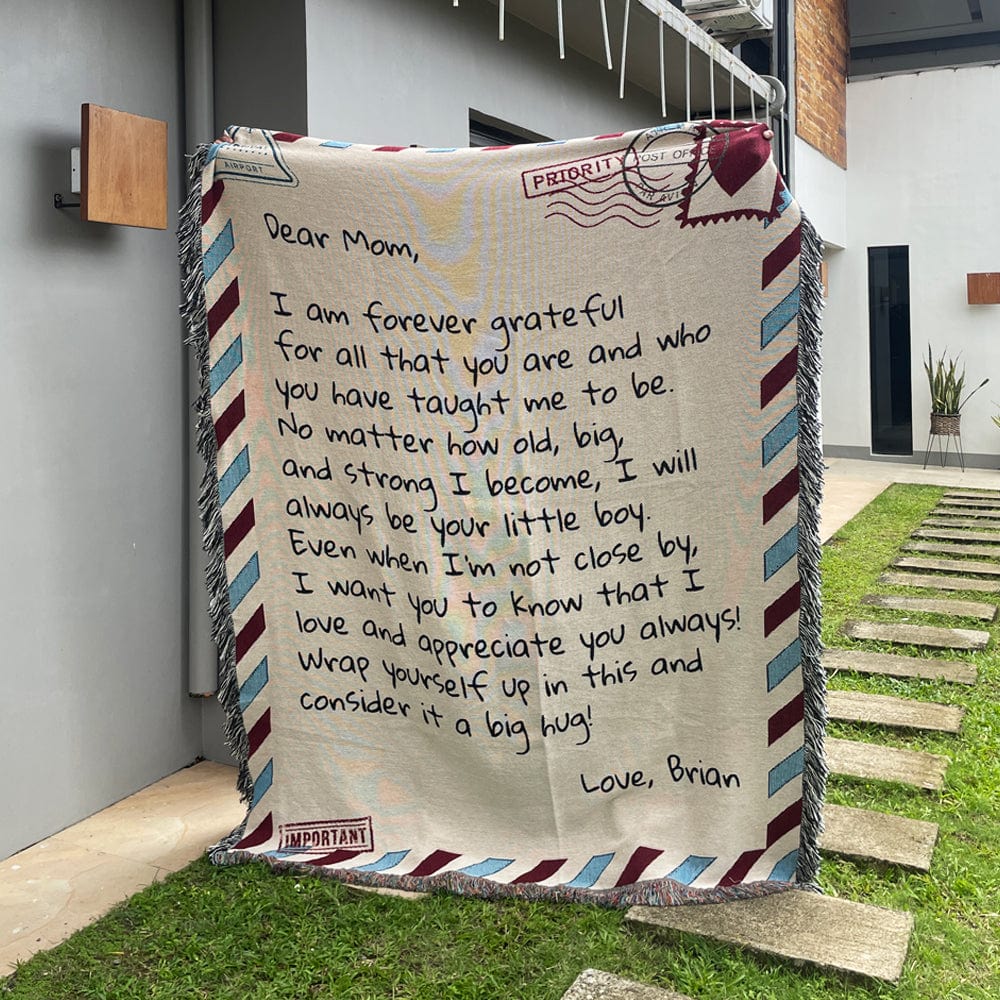 AIRPORT
PRIORITY
POST OFFICE
PAR AVION
Dear Mom,
I am forever grateful
for all that you are and who
you have taught me to be.
No matter how old, big,
and strong I become, I will
always be your little boy.
Even when I'm not close by,
I want you to know that I
love and appreciate you always!
Wrap yourself up in this and
consider it a big hug!
Love, Brian
IMPORTANT